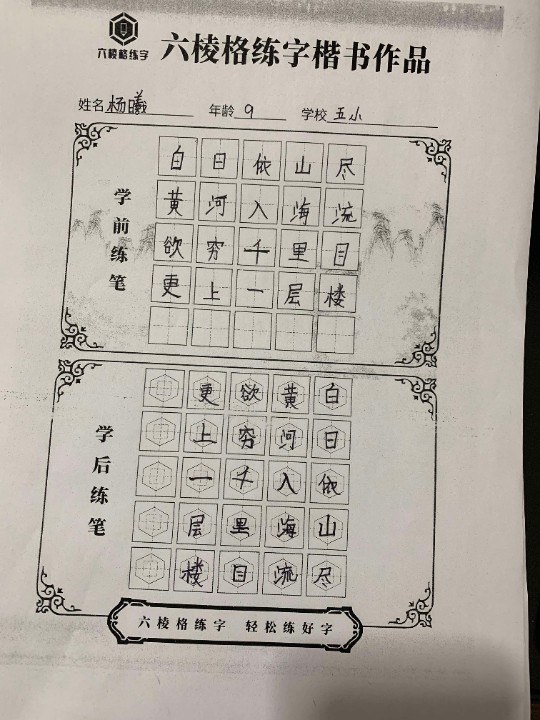 六棱格练字
六棱格练字楷书作品
姓名 杨曦 年龄 9 学校 五小
学前练笔
白日依山尽
黄河入海流
欲穷千里目
更上一层楼
学后练笔
白日依山尽
黄河入海流
欲穷千里目
更上一层楼
六棱格练字 轻松练好字